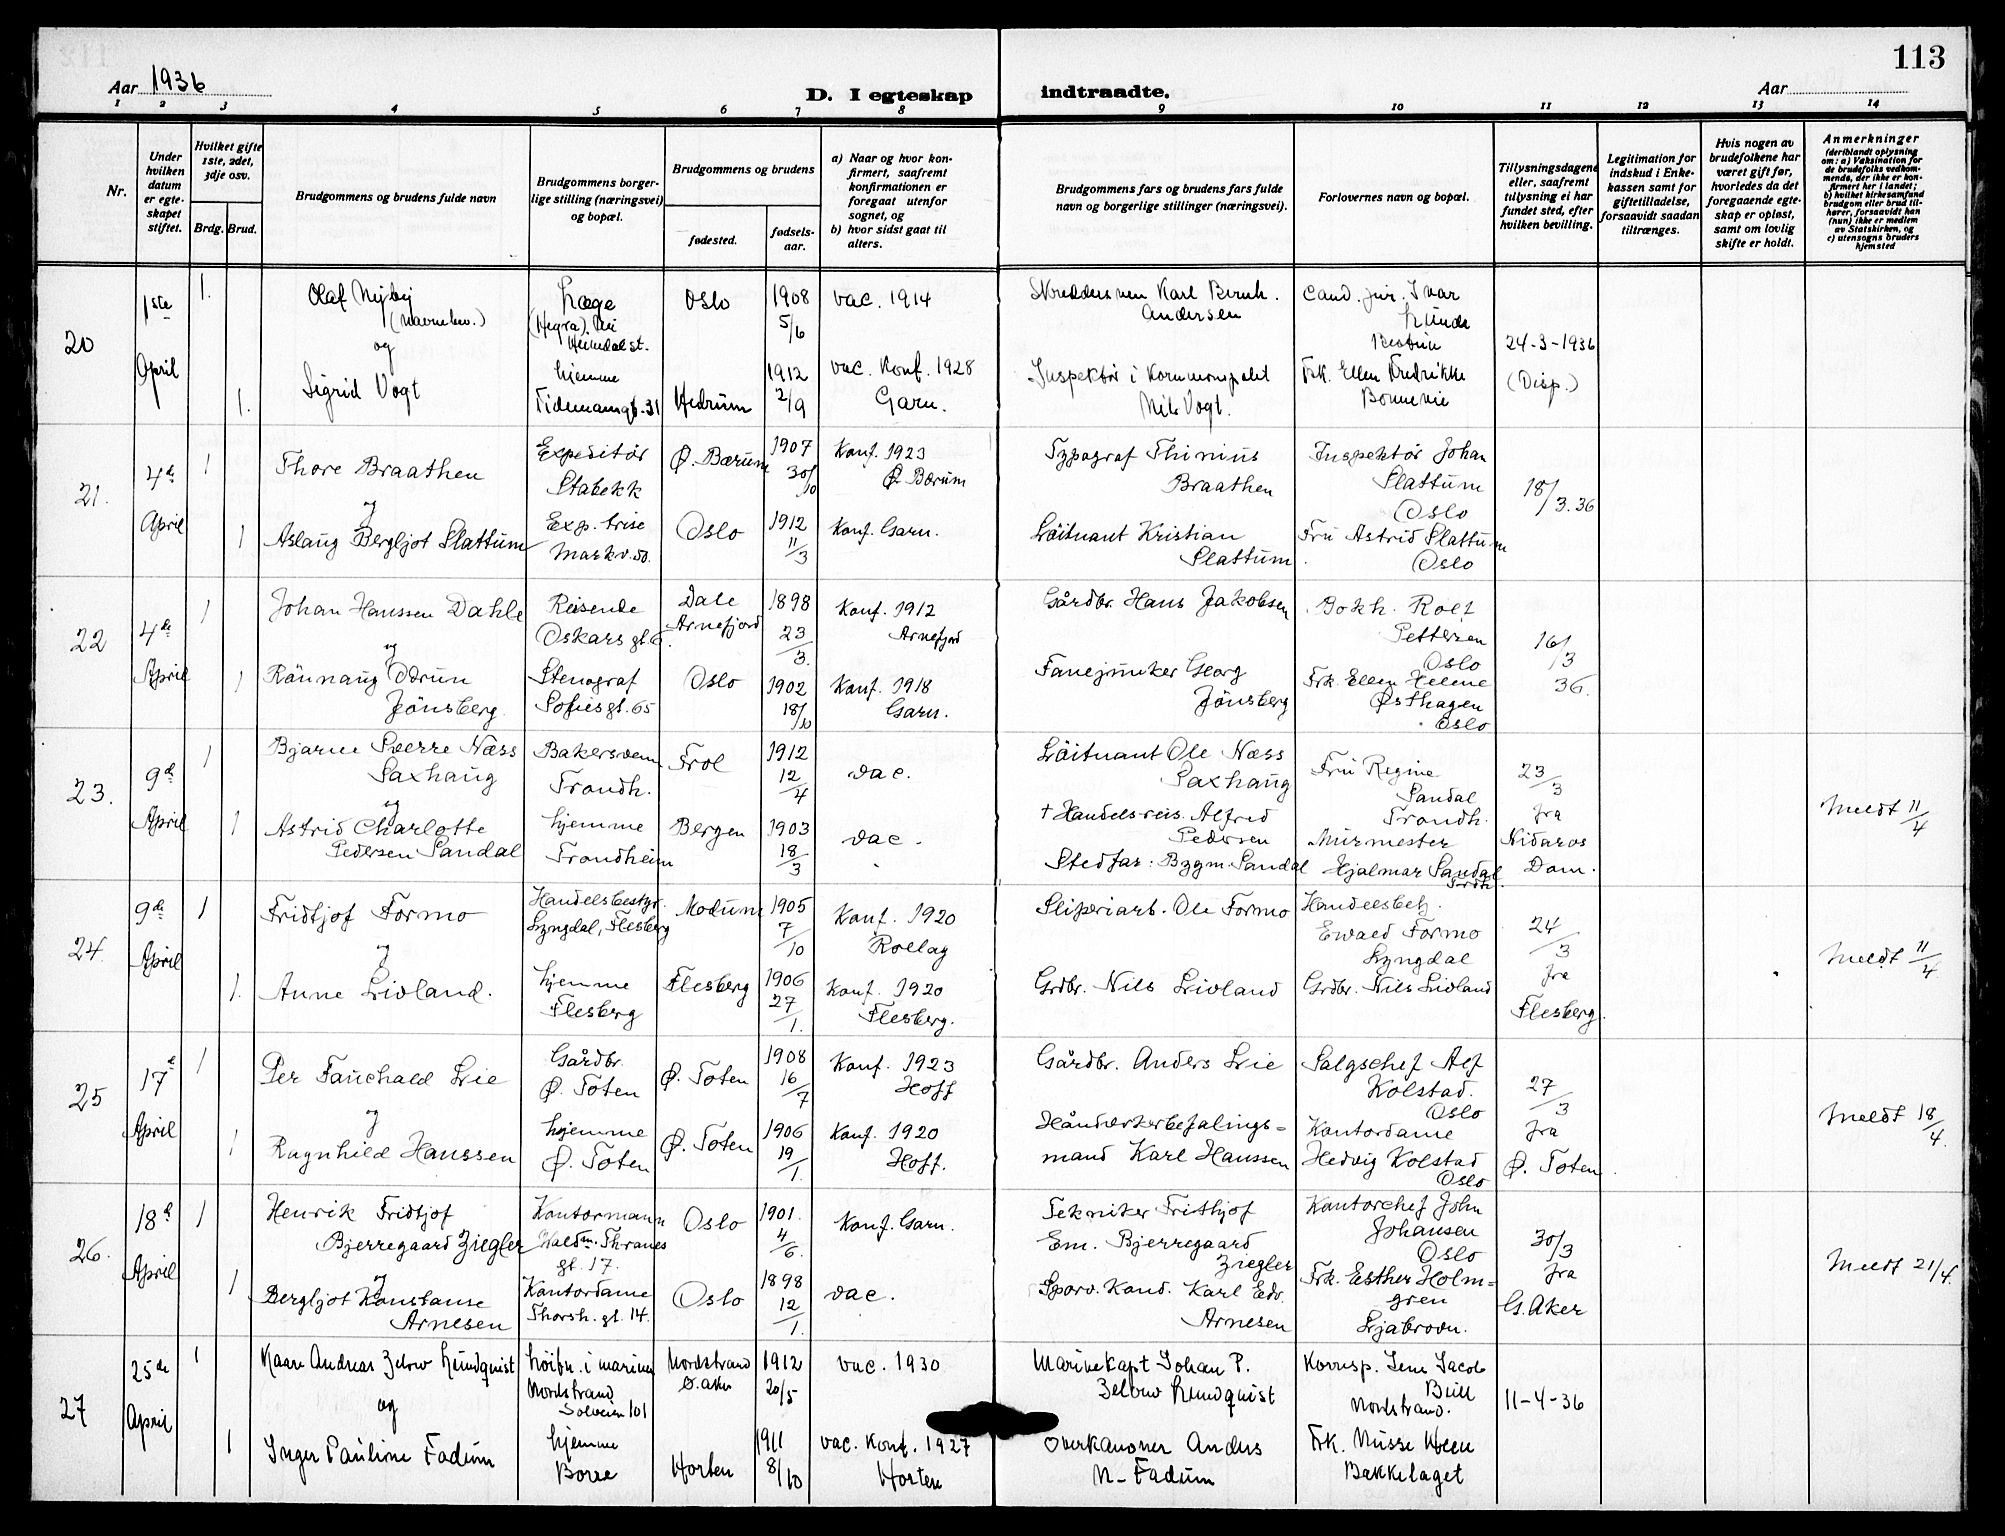 113
Aar 1936
D. I egteskap indtraadte.
Aar
1 2 3 4 5 6 7 8 9 10 11 12 13 14
Nr.
Under hvilken datum er egteskapet stiftet.
Hvilket gifte 1ste, 2det, 3dje osv.
Brdg. Brud.
Brudgommens og brudens fulde navn
Brudgommens borgerlige stilling (næringsvei) og bopæl.
Brudgommens og brudens
fødested.
fødselsaar.
a) Naar og hvor konfirmert, saafremt konfirmationen er foregaat utenfor sognet, og
b) hvor sidst gaat til alters.
Brudgommens fars og brudens fars fulde navn og borgerlige stillinger (næringsvei).
Forlovernes navn og bopæl.
Tillysningsdagene eller, saafremt tillysning ei har fundet sted, efter hvilken bevilling.
Legitimation for indskud i Enkekassen samt for giftetilladelse, forsaavidt saadan tiltrænges.
Hvis nogen av brudefolkene har været gift før, hvorledes da det foregaaende egteskap er opløst, samt om lovlig skifte er holdt.
Anmerkninger
(deriblandt oplysning om: a) Vaksination for de brudefolks vedkommende, der ikke er konfirmert her i landet; b) hvilket kirkesamfund brudgom eller brud tilhører, forsaavidt han (hun) ikke er medlem av Statskirken, og c) utensogns bruders hjemsted
20
1ste April
1.
Olaf Nyby
(Navnebev.)
og
Læge
Oslo
1908 5/6
vac. 1914
Karl Bernh. Andersen
Cand. jur. Ivar Lunde
24-3-1936
(Disp.)
1.
Sigrid Vogt
hjemme
Tidemannsgt. 31
Hedrum
1912 2/9
vac. Konf. 1928
Garn.
Inspektør i Kornmonopolet
Nils Vogt.
Frk. Ellen Fredrikke
Bonnevie
21.
4de April
1
Thore Braathen
og
Expeditør
Stabekk
Ø. Bærum
1907 30/10
Konf. 1923
Ø. Bærum
Typograf Thinius
Braathen
Inspektør Johan
Slattum
Oslo
18/3.36
1
Aslaug Bergljot Slattum
Exp. trise
Markv. 50.
Oslo
1912 11/3
Konf. Garn.
Løitnant Kristian
Slattum
Fru Astrid Slattum
Oslo
22
4de April
1
Johan Hanssen Dahle
og
Reisende
Oskars gt. 6.
Dale
Arnefjord
1898 23/3.
Konf. 1912
Arnefjord
Gårdbr. Hans Jakobsen
Bokh. Rolf
Pettersen
Oslo
16/3 36.
1
Rønnaug Odrun
Jønsberg.
Stenograf
Sofiesgt. 65
Oslo
1902 18/10
Konf. 1918
Garn.
Fanejunker Georg
Jønsberg
Frk. Ellen Helene
Østhagen
Oslo
23.
9de April
1
Bjarne Sverre Næss
Saxhaug
og
Bakersvenn
Trondh.
Frol
1912 12/4
vac.
Løitnant Ole Næss
Saxhaug
Fru Regine
Sandal
Trondh.
23/3 fra
Nidaros
Dom.
Meldt 11/4
1
Astrid Charlotte
Pedersen Sandal
hjemme
Trondheim
Bergen
1903 18/3
vac.
† Handelsreis. Alfred
Pedersen
Stedfar: Bygm. Sandal
Murmester
Hjalmar Sandal
Trdh.
24.
9de April
1
Fridtjof Formo
og
Handelsbestyr.
Lyngdal, Flesberg
Modum
1905 7/10
Konf. 1920
Rollag
Sliperiarb. Ole Formo
Handelsbetj.
Ewald Formo
Lyngdal
24/3 fra
Flesberg.
Meldt 11/4
1.
Anne Livland.
hjemme
Flesberg
Flesberg
1906 27/1.
Konf. 1920
Flesberg.
Grdbr. Nils Livland
Grdbr. Nils Livland
25
17de April
1
Per Fauchald Lie
og
Gårdbr.
Ø. Toten
Ø. Toten
1908 16/7
Konf. 1923
Hoff
Gårdbr. Anders Lie
Salgschef Alf
Kolstad.
Oslo
27/3 fra
Ø. Toten
Meldt 18/4.
1
Ragnhild Hanssen
hjemme
Ø. Toten
Ø. Toten
1906 19/1.
Konf. 1920
Hoff.
Håndverkerbefalings-
mand Karl Hanssen
Kontordame
Hedvig Kolstad
Oslo
26.
18de April
1
Henrik Fridtjof
Bjerregaard Ziegler
og
Kontormann
Waldm. Thranes
gt. 17.
Oslo
1901. 4/6.
Konf. Garn.
Tekniker Frithjof
Em. Bjerregaard
Ziegler
Kontorchef John
Johansen
Oslo
30/3 fra
G. Aker
Meldt 21/4.
1
Bergljot Konstanse
Arnesen
Kontordame
Thorsh. gt. 14.
Oslo
1898 12/1.
vac.
Sporv. Kond. Karl Edv.
Arnesen
Frk. Esther Holm-
gren
Ljabrovn.
27
25de April
1
Kaare Andreas Zelow Lundquist
og
Løitn. i marinen
Nordstrand
Solveien 101
Nordstrand
Ø. Aker
1912 20/5
vac. 1930
Marinekapt Johan P.
Zelow Lundquist
Korresp. Jens Jacob
Bull
Nordstrand.
11-4-36
1
Inger Pauline Fadum
hjemme
Borre
Horten
1911 8/10
vac. Konf. 1927
Horten
Overkanoner Anders
N- Fadum
Frk. Nusse Ween
Bakkelaget